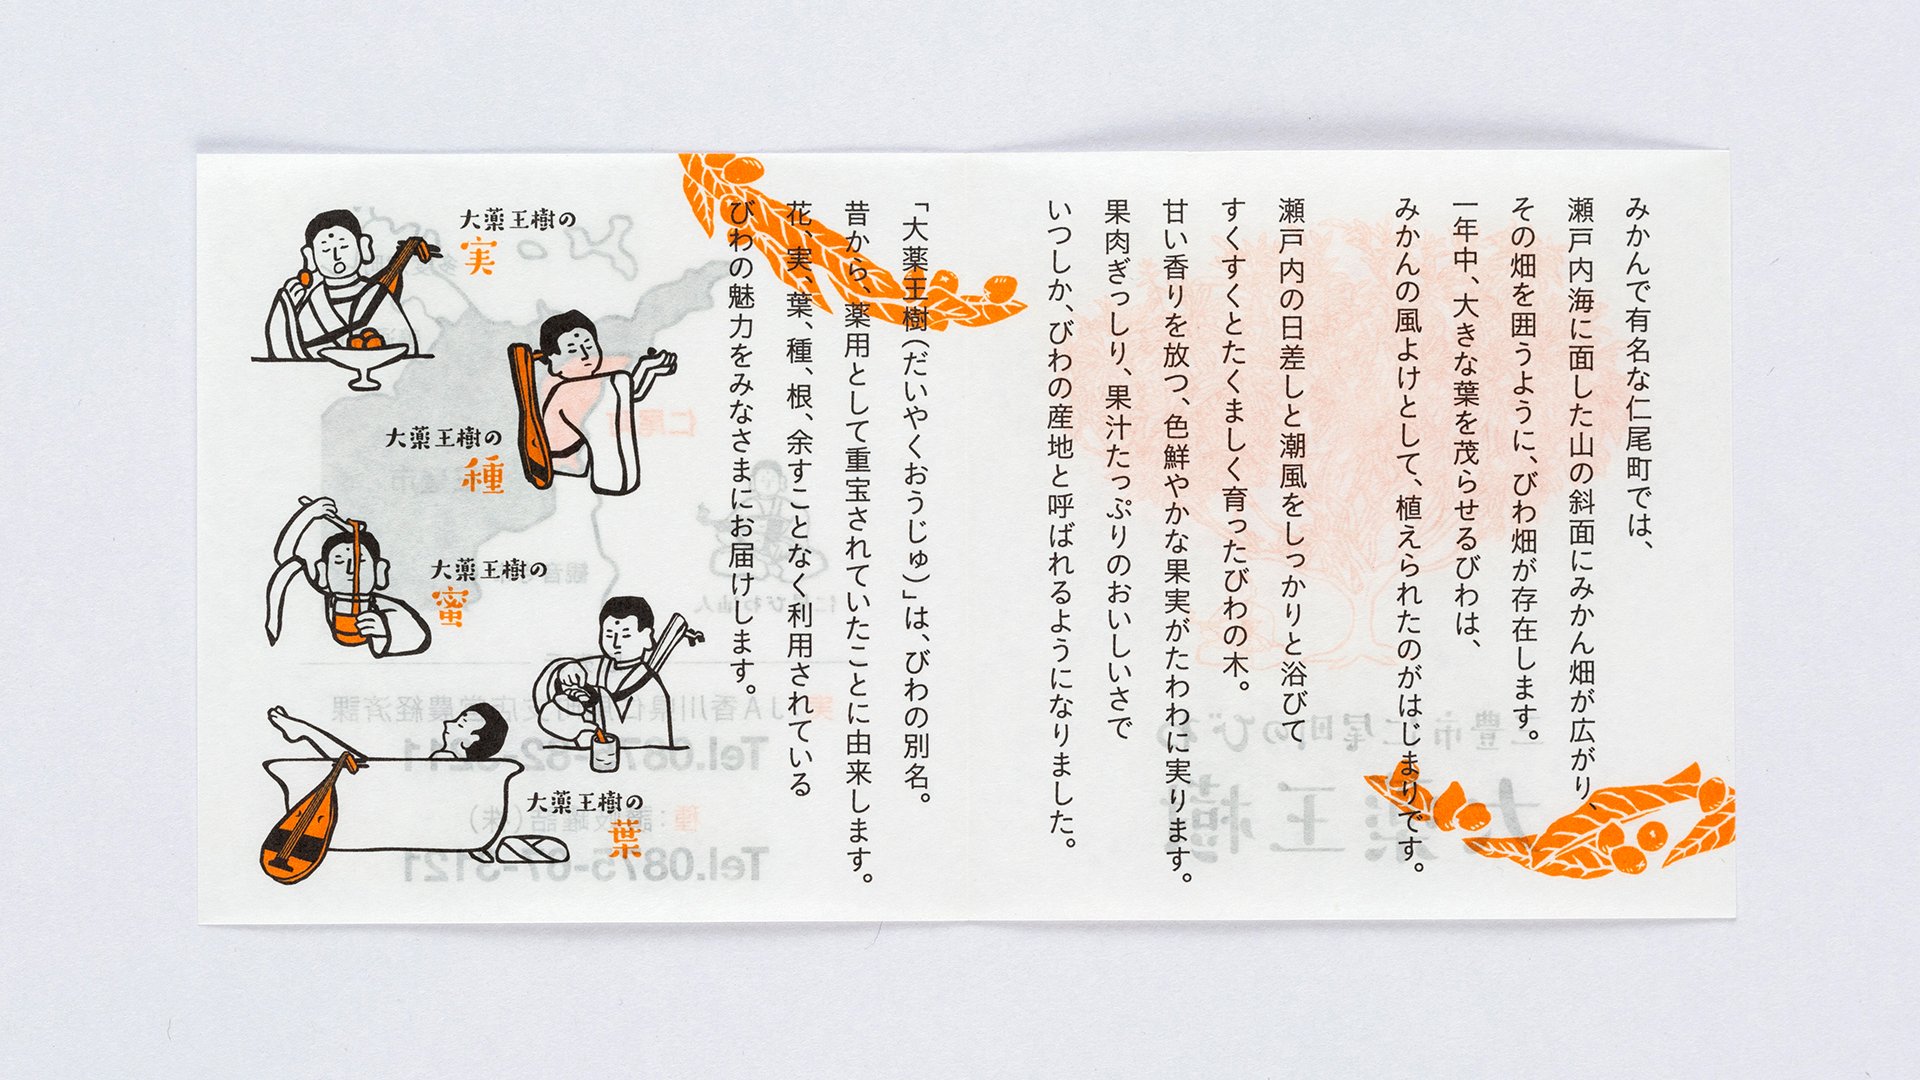 みかんで有名な仁尾町では、
瀬戸内海に面した山の斜面にみかん畑が広がり、
その畑を囲うように、びわ畑が存在します。
一年中、大きな葉を茂らせるびわは、
みかんの風よけとして、植えられたのがはじまりです。
瀬戸内の日差しと潮風をしっかりと浴びて
すくすくとたくましく育ったびわの木。
甘い香りを放つ、色鮮やかな果実がたわわに実ります。
果肉ぎっしり、果汁たっぷりのおいしいさで
いつしか、びわの産地と呼ばれるようになりました。
「大薬王樹（だいやくおうじゅ）」は、びわの別名。
昔から、薬用として重宝されていたことに由来します。
花、実、葉、種、根、余すことなく利用されている
びわの魅力をみなさまにお届けします。
大薬王樹の
実
大薬王樹の
種
大薬王樹の
蜜
大薬王樹の
葉
三豊市仁尾町のびわ
大薬王樹
仁尾町
仁尾びわ仙人
Tel.0875-82-3211
Tel.0875-67-3121